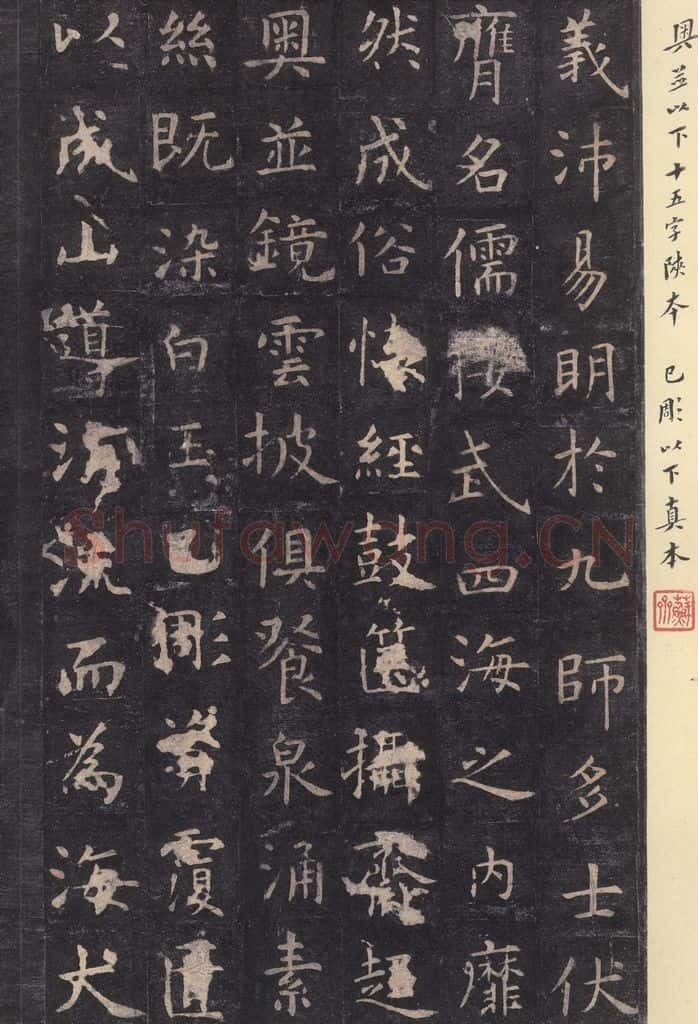 興並以下十五字陝本 已彫以下真本
義沛易明於九師多士伏
膺名儒接武四海之内靡
然成俗懐經鼓篋攝齋趍
奥並鏡雲披俱飱泉涌素
絲既染白玉已彫資覆匱
以成山導涓流而為海大
Shufawang.CN